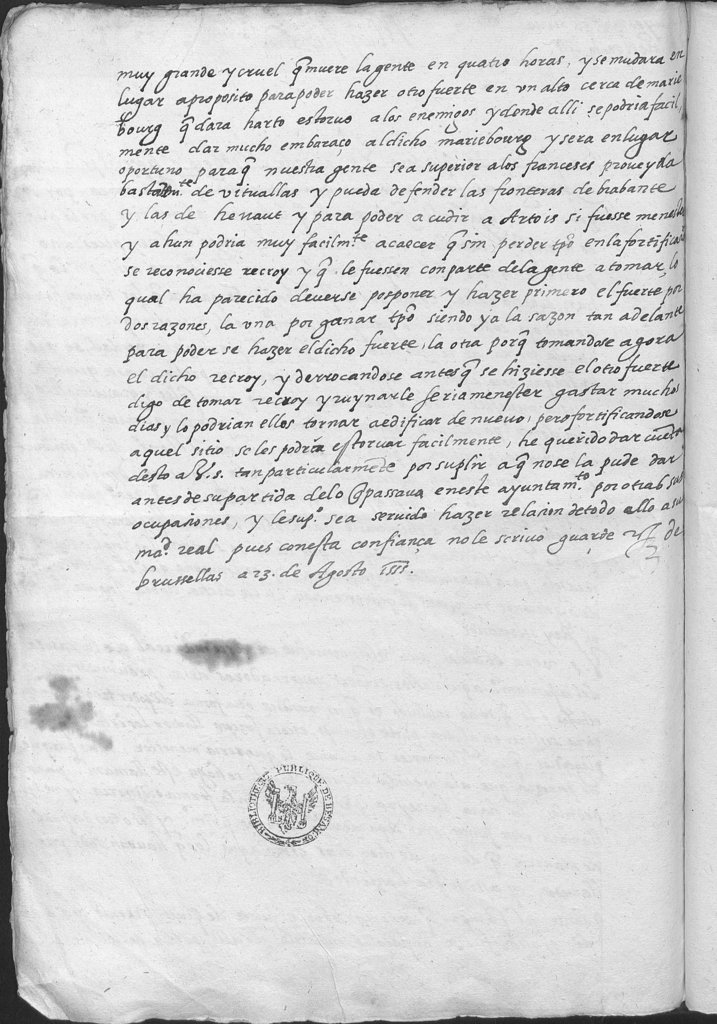 muy grande y cruel q̃ muere la gente en quatro horas, y se mudara en
lugar a proposito para poder hazer otro fuerte en vn alto cerca de marie
bourg q̃ dara harto estoruo a los enemigos y donde alli se podria facil
mente dar mucho embaraço al dicho mariebourg y sera en lugar
oportuno paraq̃ nuestra gente sea superior a los franceses proueyda
bastantemte. de vituallas y pueda defender las fronteras de brabante
y las de henaut y para poder acudir a Artois si fuesse menester
y ahun podria muy facilmte. acaecer q̃ sin perder tpõ en la fortificaõn
se reconociesse recroy y q̃ le fuessen con parte de la gente a tomar, lo
qual ha parecido deuerse posponer y hazer primero el fuerte por
dos razones, la vna por ganar tpõ siendo ya la sazon tan adelante
para poder se hazer el dicho fuerte, la otra porq̃ tomandose agora
el dicho recroy, y derrocandose antes q̃ se hiziesse el otro fuerte
digo de tomar recroy y ruynarle seria menester gastar muchos
dias y lo podrian ellos tornar a edificar de nueuo, pero fortificandose
aquel sitio se les podria estoruar facilmente, he querido dar cuenta
desto a V. s. tan particularmente por suplir a q̃ no se la pude dar
antes de su partida de lo q̃ passaua en este ayuntamto. por otras sus
ocupasiones, y le supco. sea seruido hazer relasion de todo ello a su
mad. real pues con esta confiança no le scriuo guarde de
brussellas a 23. de Agosto 1555.
BIBLIOTHEQUE PUBLIQUE DE BESANÇON